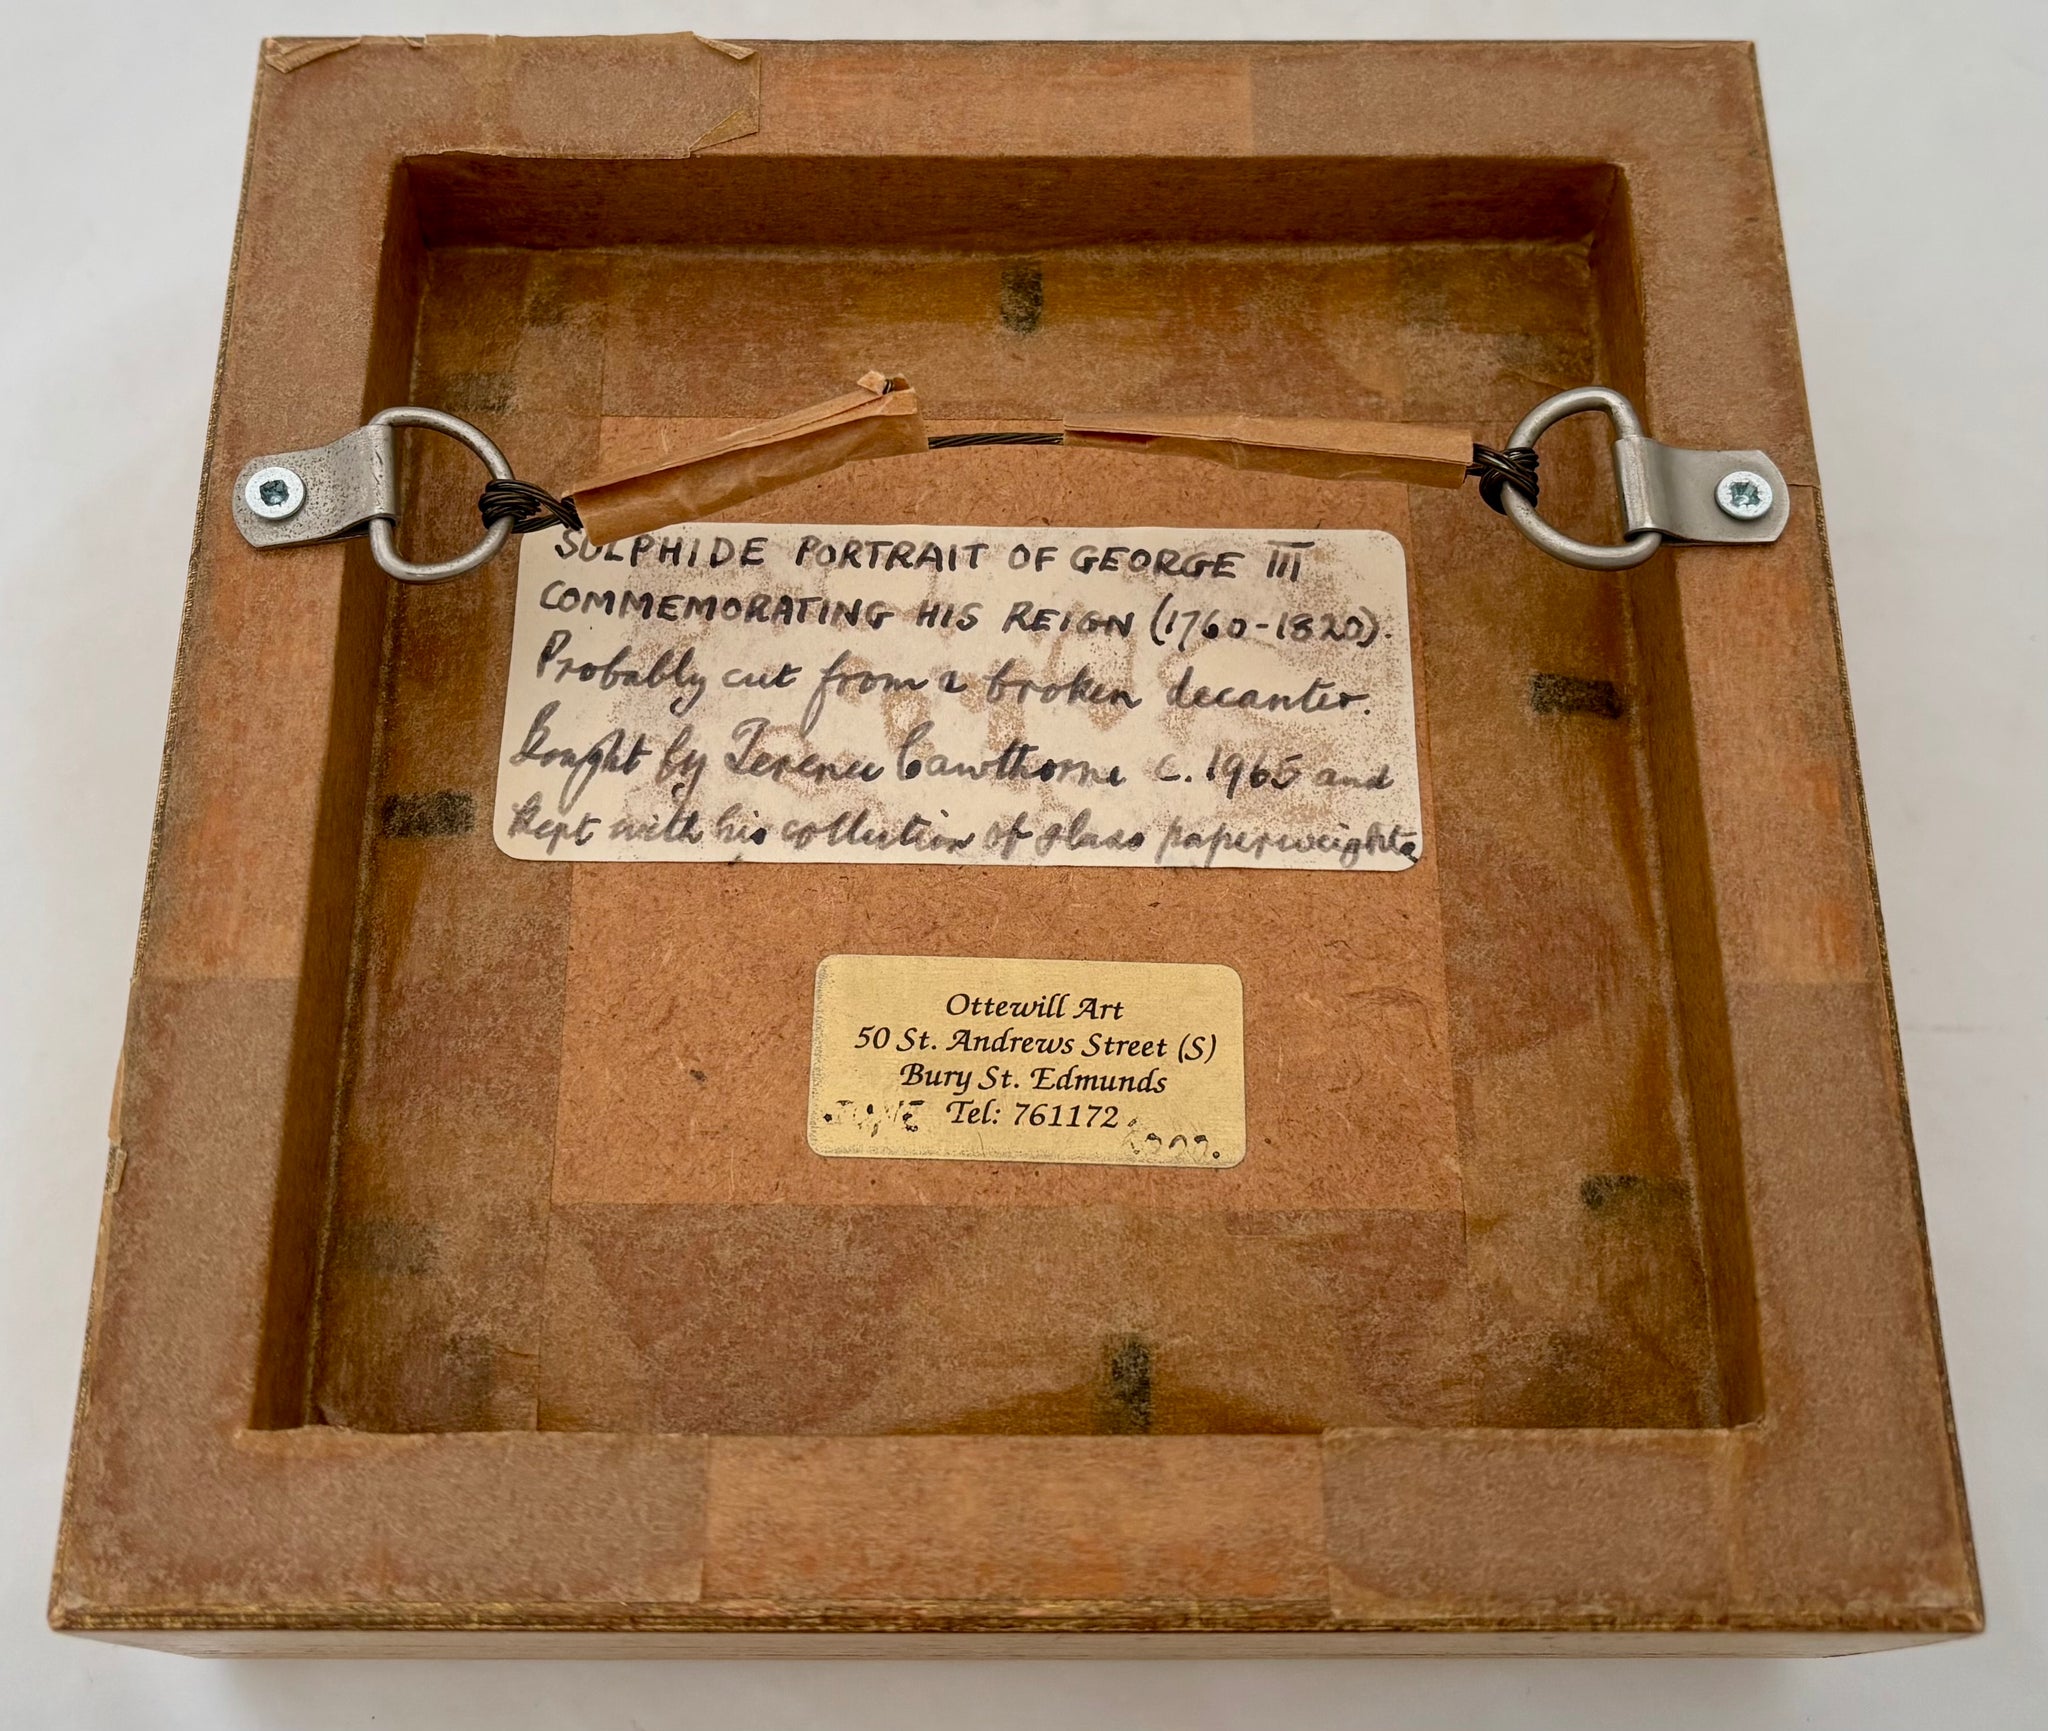 SULPHIDE PORTRAIT OF GEORGE III
COMMEMORATING HIS REIGN (1760-1820).
Probably cut from a broken decanter.
Bought by Terence Cawthorne c. 1965 and
kept with his collection of glass paperweights
Ottewill Art
50 St. Andrews Street (S)
Bury St. Edmunds
JUNE Tel: 761172